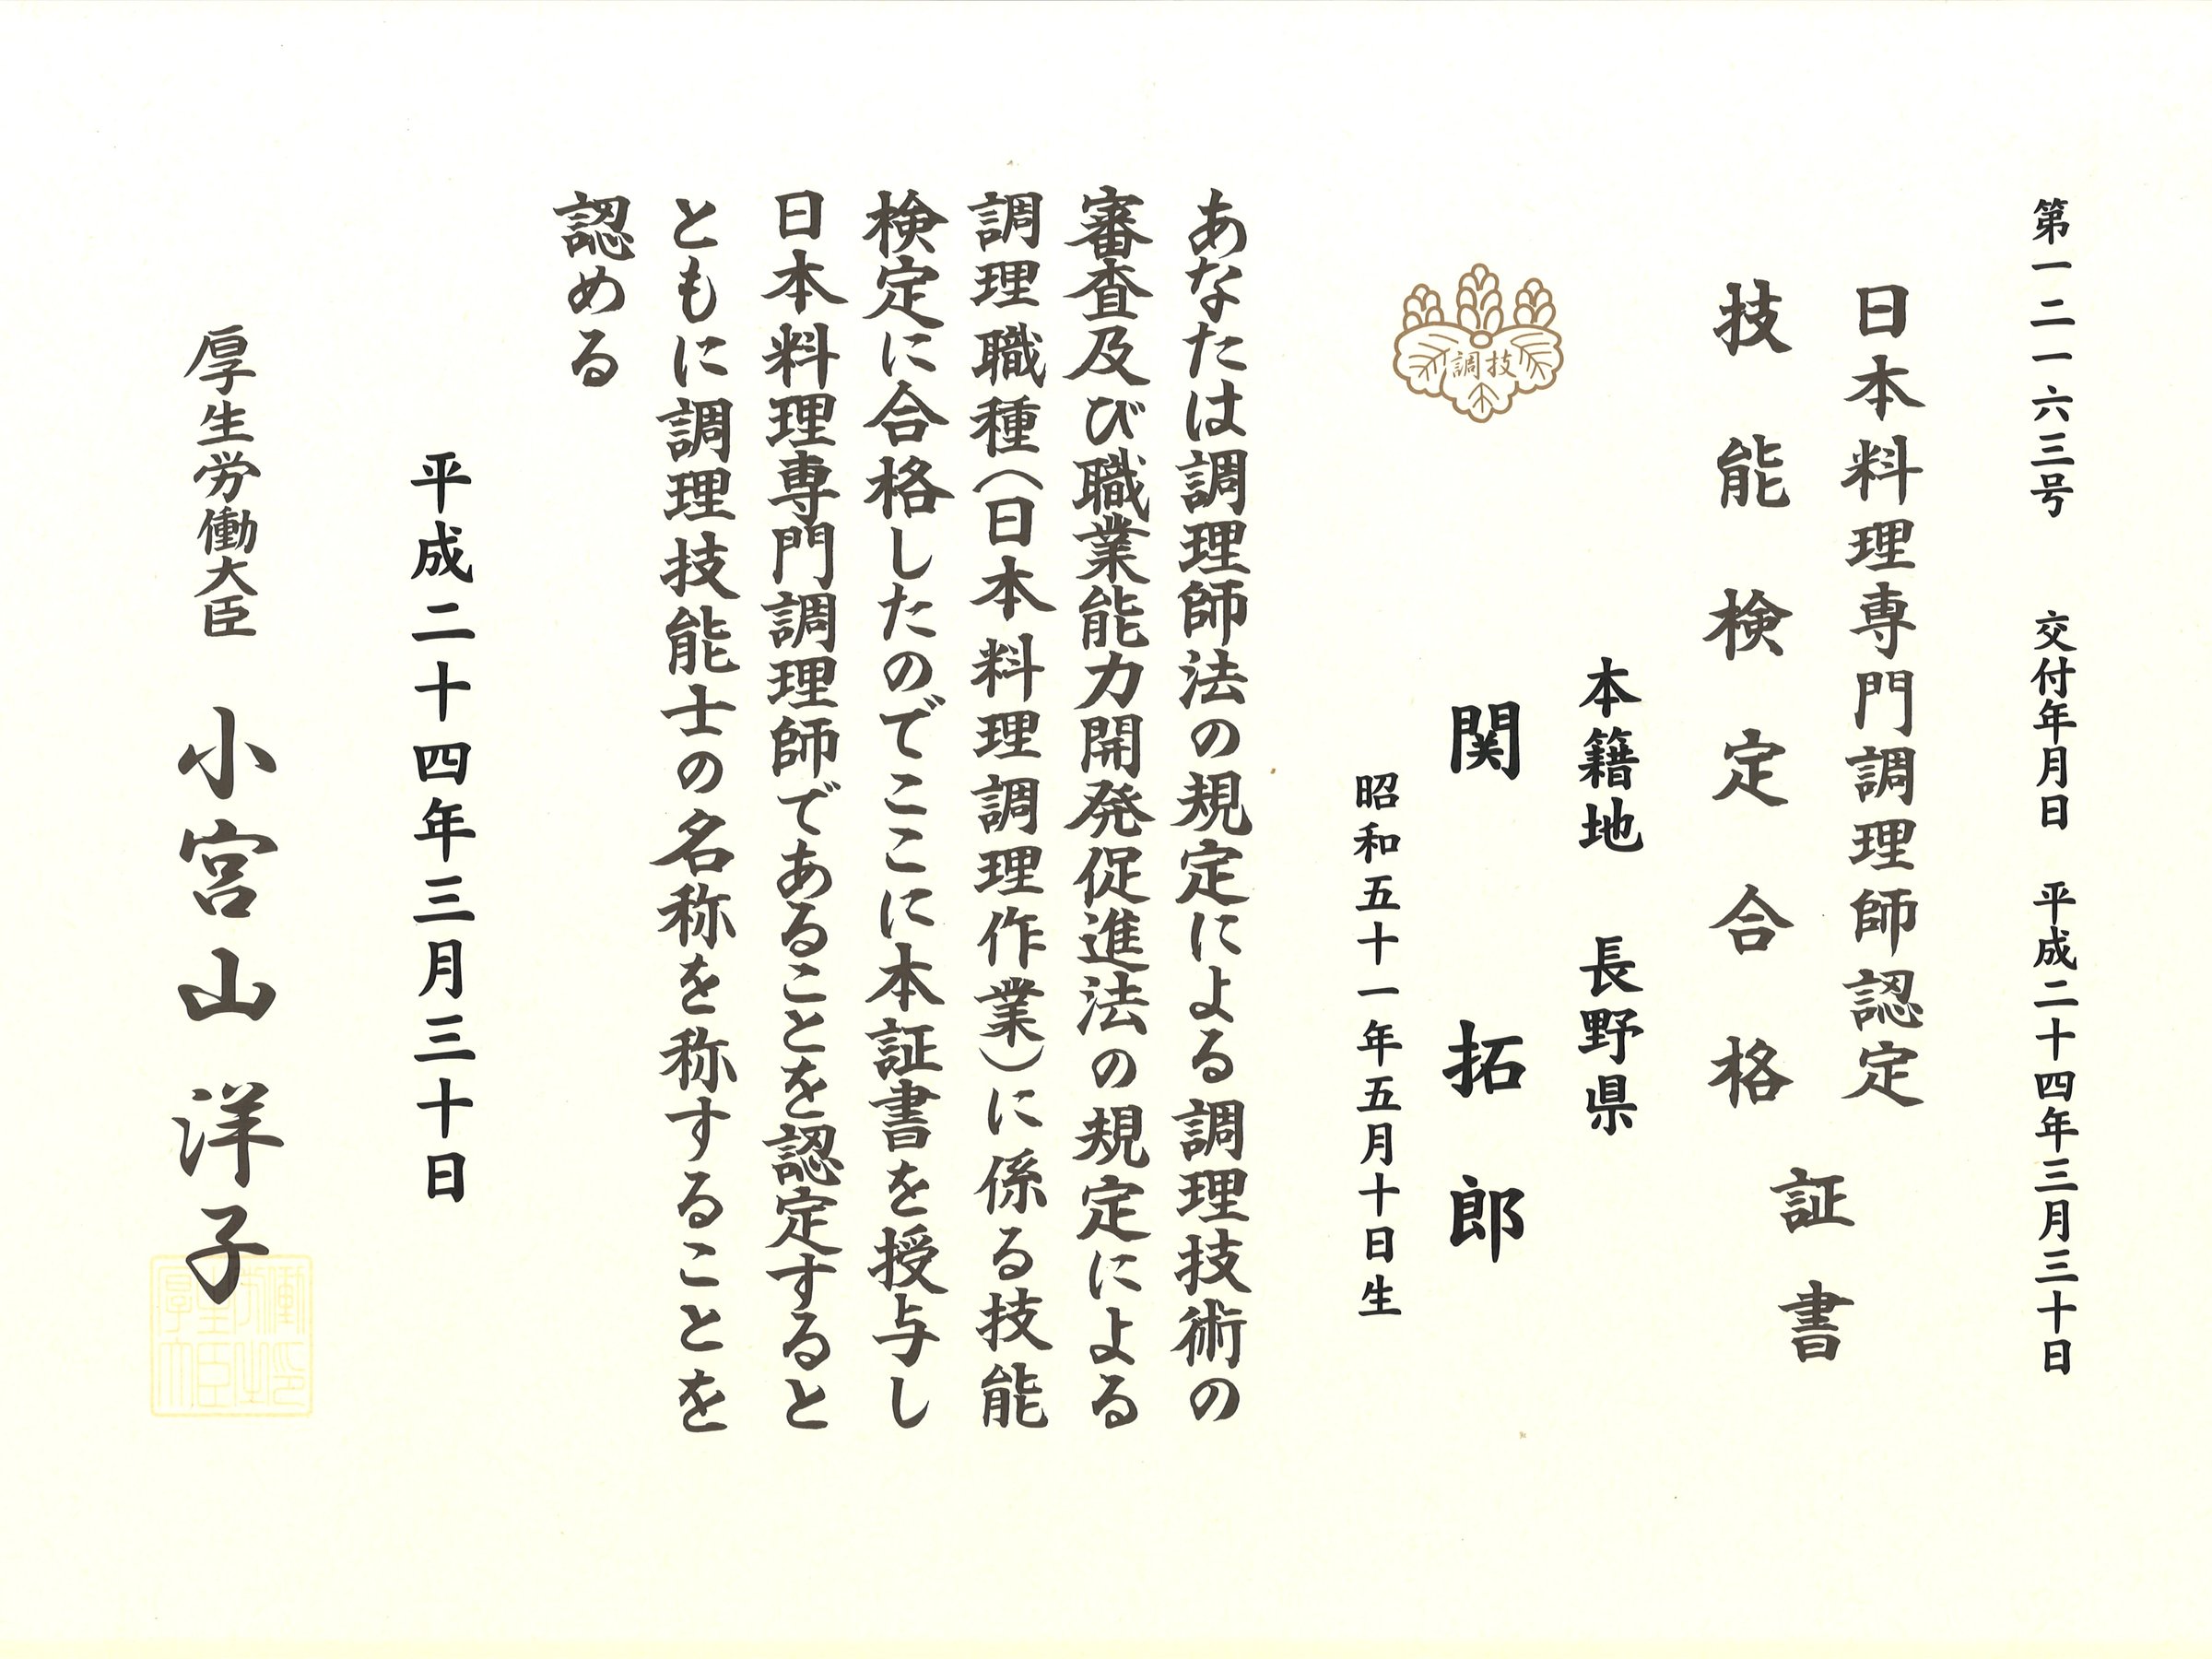 第一二一一六三号　交付年月日　平成二十四年三月三十日
日本料理専門調理師認定
技能検定合格
証書
本籍地　長野県
調技
関　拓郎
昭和五十一年五月十日生
あなたは調理師法の規定による調理技術の
審査及び職業能力開発促進法の規定による
調理職種（日本料理調理作業）に係る技能
検定に合格したのでここに本証書を授与し
日本料理専門調理師であることを認定すると
ともに調理技能士の名称を称することを
認める
平成二十四年三月三十日
厚生労働大臣　小宮山洋子